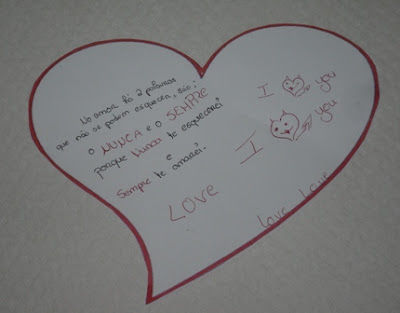 No amor há 2 palavras
que não se podem esquecer, são:
O NUNCA e o SEMPRE
porque Nunca te esquecerei
e
Sempre te amarei.
Love
I you
I you
Love Love